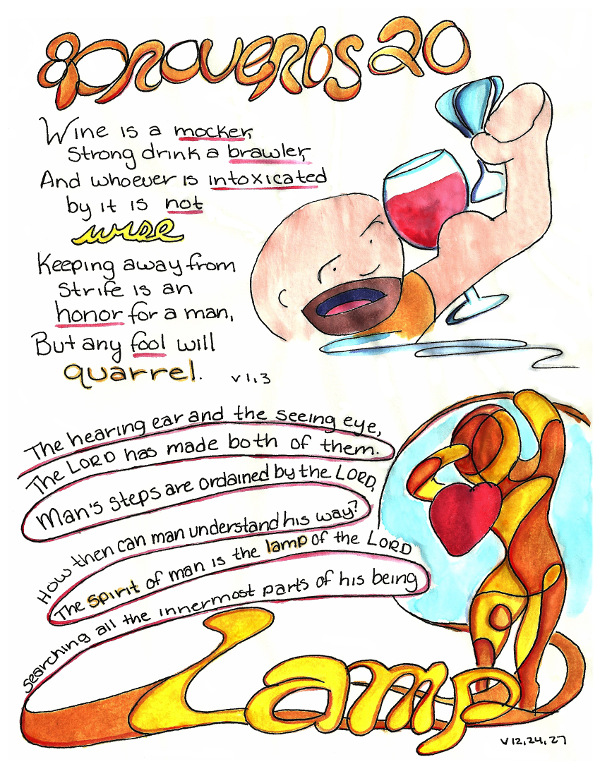 Proverbs 20
Wine is a mocker,
Strong drink a brawler,
And whoever is intoxicated
by it is not
wise
Keeping away from
Strife is an
honor for a man,
But any fool will
quarrel. v 1,3
The hearing ear and the seeing eye,
The LORD has made both of them.
Man's steps are ordained by the LORD,
How then can man understand his way?
The spirit of man is the lamp of the LORD
searching all the innermost parts of his being
Lamp
v 12, 24, 27